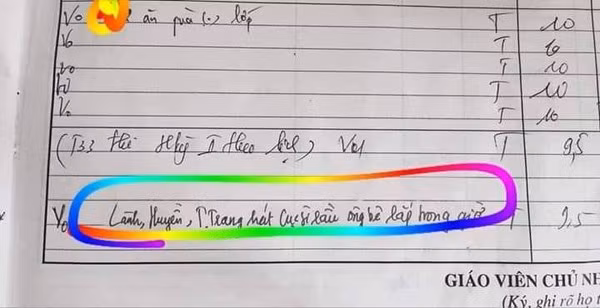 V0 ăn quà (.) lớp T 10
V0 T 10
V0 T 10
V0 T 10
V0 T 10
(T33 thi Hkỳ II theo lịch) V01 T 9,5
V0 Lành, Huyền, T. Trang hát Cục sì lầu ông bê lắp trong giờ T 9,5
GIÁO VIÊN CHỦ NH
(Ký, ghi rõ họ